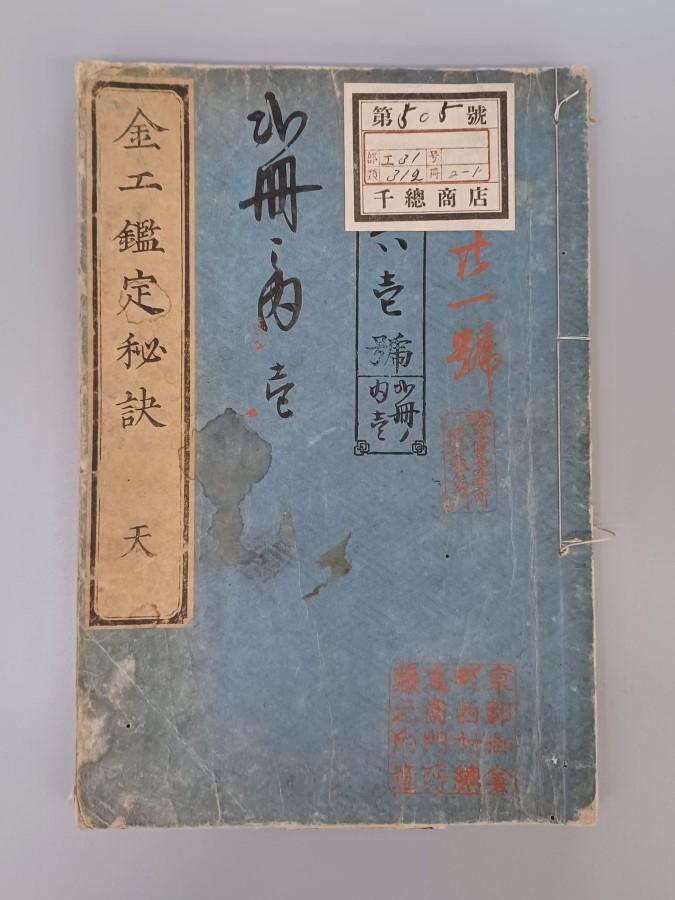 金工鑑定秘訣 天
小冊ノ内 壱
第505號
部 工31 号
類 312 冊 2-1
千總商店
六壱號
小冊ノ
内壱
一號
京都御倉
町西村總
左衛門所
蔵之内壱